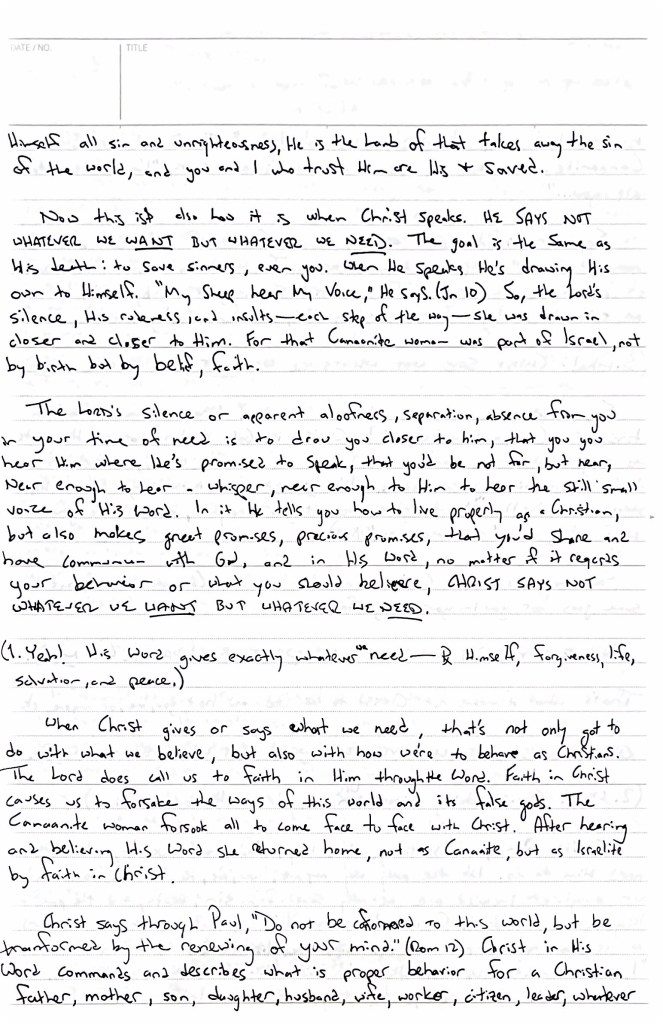 DATE / NO.
TITLE
Himself all sin and unrighteousness, He is the Lamb of that takes away the sin
of the world, and you and I who trust Him are His + saved.
Now this is also how it is when Christ speaks. HE SAYS NOT
WHATEVER WE WANT BUT WHATEVER WE NEED. The goal is the same as
His death: to save sinners, even you. When He speaks He's drawing His
own to Himself. "My Sheep hear My Voice," He says. (Jn 10) So, the Lord's
silence, His rudeness, and insults—each step of the way—she was drawn in
closer and closer to Him. For that Canaanite woman was part of Israel, not
by birth but by belif, faith.
The LORD's silence or apparent aloofness, separation, absence from you
in your time of need is to draw you closer to him, that you you
hear Him where He's promised to speak, that you'd be not far, but near,
Near enough to hear a whisper, near enough to Him to hear the still small
voice of His Word. In it He tells you how to live properly as a Christian,
but also makes great promises, precious promises, that you'd share and
have communion with God, and in His Word, no matter if it regards
your behavior or what you should believe, CHRIST SAYS NOT
WHATEVER WE WANT BUT WHATEVER WE NEED.
(1. Yeah! His Word gives exactly whatever we need — Himself, forgiveness, life,
salvation, and peace.)
When Christ gives or says what we need, that's not only got to
do with what we believe, but also with how we're to behave as Christians.
The Lord does call us to faith in Him through the Word. Faith in Christ
causes us to forsake the ways of this world and its false gods. The
Canaanite woman forsook all to come face to face with Christ. After hearing
and believing His Word she returned home, not as Canaanite, but as Israelite
by faith in Christ.
Christ says through Paul, "Do not be conformed to this world, but be
tranformed by the renewing of your mind." (Rom 12) Christ in His
Word commands and describes what is proper behavior for a Christian
father, mother, son, daughter, husband, wife, worker, citizen, leader, whatever